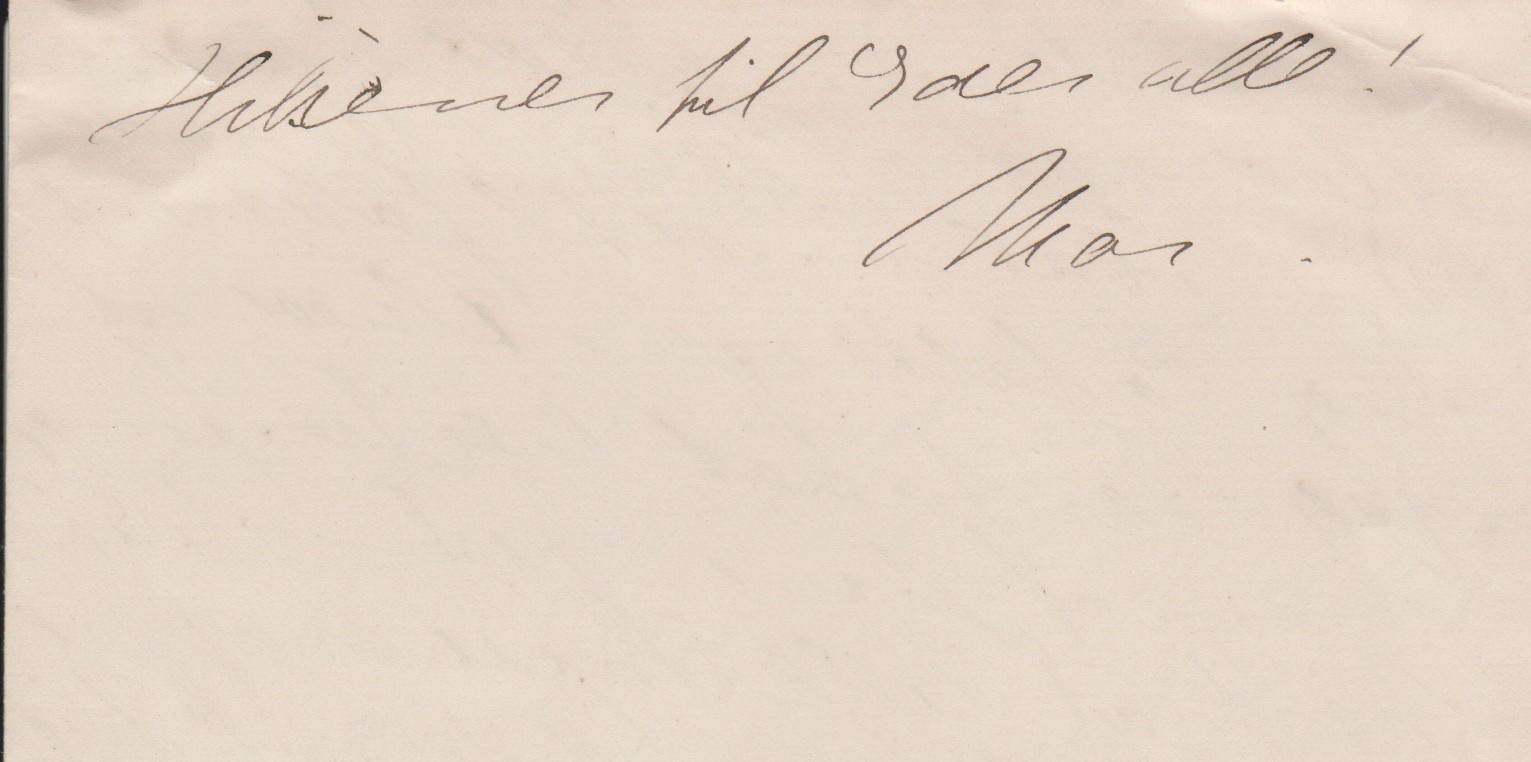 Hilsener til Eder alle!
Mor.